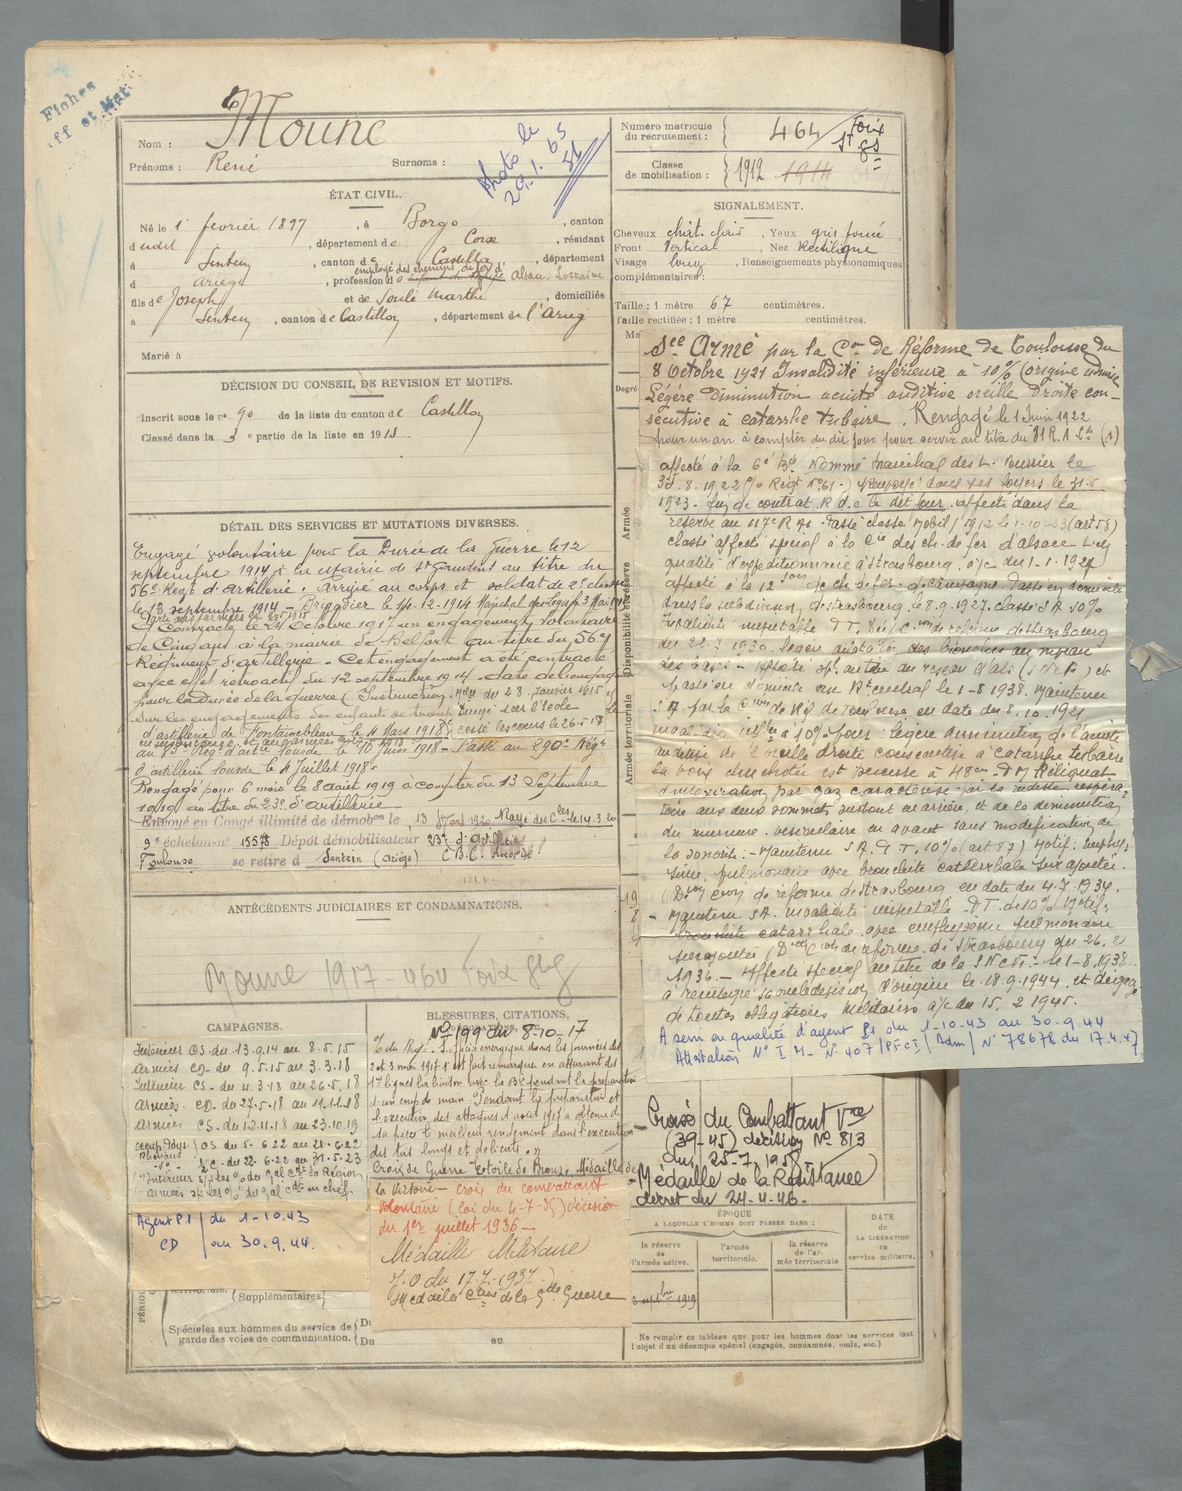 Fiches
ff et Mat
Nom : Moune
Prénoms : René Surnoms :
Photo le
29.1.63
Numéro matricule
du recrutement : 464 Foix
St Gs
Classe
de mobilisation : 1912 1914
ÉTAT CIVIL.
Né le 1er février 1897, à Borgo, canton
dudit, département de Corse, résidant
à Sentein, canton de Castillon, département
d Ariège, profession d employé des chemins de fer d'Alsace Lorraine
fils de Joseph et de Soulé Marthe, domiciliés
à Sentein, canton de Castillon, département de l'Arieg
Marié à
SIGNALEMENT.
Cheveux chât. clair, Yeux gris foncé
Front Vertical, Nez Rectiligne
Visage long, Renseignements physionomiques
complémentaires :
Taille : 1 mètre 67 centimètres.
Taille rectifiée : 1 mètre centimètres.
Ma
Degré
DÉCISION DU CONSEIL DE REVISION ET MOTIFS.
Inscrit sous le n° 90 de la liste du canton de Castillon
Classé dans la 3e partie de la liste en 191
DÉTAIL DES SERVICES ET MUTATIONS DIVERSES.
Engagé volontaire pour la Durée de la guerre le 12
septembre 1914 à la Mairie de St Gaudens au titre du
56e Régt d'artillerie. Arrivé au corps et soldat de 2e classe
le 13 septembre 1914 – Brigadier le 14-12-1914 Maréchal des Logis 3 Mai
Contracté le 24 Octobre 1917 un engagement volontaire
de Cinq ans à la mairie de Belfort au titre du 56e
Régiment d'artillerie – Cet engagement a été contracté
avec effet rétroactif du 12 septembre 1914 – date de l'engagé
pour la Durée de la guerre (Instruction du 28 Janvier 1915
sur les engagements des enfants de troupe Dirigé sur l'école
d'artillerie de Fontainebleau le 4 Mars 1918 cessé les cours le 26.5.18
au Rég. d'artie lourde le 10 Juin 1918 – Passé au 290e Régt
d'artillerie lourde le 4 Juillet 1918.
Rengagé pour 6 mois le 8 août 1919 à compter du 13 Septembre
1919 au titre du 23e d'artillerie
Envoyé en Congé illimité de démobon le 13 1920 Rayé des Cles le 14.3.20
9e échelon n° 15578 Dépôt démobilisateur 23e d'artillerie
Toulouse se retire à Sentein (Ariège) C.B.C. accordé
ANTÉCÉDENTS JUDICIAIRES ET CONDAMNATIONS.
Moune 1917 464 Foix
Sce Armé par la Con de Réforme de Toulouse du
8 Octobre 1921 Invalidité inférieure à 10% (origine admise
Légère diminution acuité auditive oreille Droite con-
sécutive à catarrhe tubaire. Rengagé le 1 Juin 1922
pour un an à compter du dit jour pour servir au titre du 81 R.A.L. (1)
affecté à la 6e Bie Nommé Maréchal des L. fourrier le
Renvoyé dans ses foyers le 31.5
1923. fin de contrat. R.d.c. le dit jour. affecté dans la
réserve au 117e R.A. Passé classe Mobil/ 1912 le 1-10-23 (art 58)
classé affecté spécial à la Cie des ch. de fer d'Alsace L.
qualité d'expéditionnaire à Strasbourg. a/c du 1-1-1927
affecté à la 12 Son de ch. de fer de campagne Passé en domicile
dans la subdivision de Strasbourg le 8.9.1927. classé S.A. 10%
de réforme de Strasbourg
du 22-7-1930. légère dilatation des bronches au niveau
des bases – Affecté sp. au titre du réseau d'Als (S.N.C.F.) et
passé en domicile au Rt central le 1-8-1938. Maintenu
S.A. par la Con de Réf. de Toulouse en date du 8.10.1921
Invalidité infre à 10% pour : légère diminution de l'acuité
auditive de l'oreille droite consécutive à catarrhe tubaire
la voix chuchotée est perçue à 48cm – Reliquat
d'intoxication par gaz caractérisé par la rudesse respira-
toire aux deux sommets surtout en arrière, et de la diminution
du murmure vésiculaire en avant sans modification de
la sonorité. – Maintenu S.A. P.T. 10% (art 87) Motif : emphy-
sème pulmonaire avec bronchite catarrhale surajoutée.
de réforme de Strasbourg en date du 4.7.1934.
– Maintenu S.A. invalidité 10% Motif :
bronchite catarrhale avec emphysème pulmonaire
surajoutée de réforme de Strasbourg du 26.2
1936. – Affecté spécial au titre de la S.N.C.F. – le 1-8.1938
a réintégré sa subdivision d'origine le 18.9.1944 et dégagé
de toutes obligations Militaires a/c du 15.2.1945.
A servi en qualité d'agent P1 du 1-10.43 au 30.9.44
Attestation N° I M- N° 407/PFCI/Adm/ N° 78678 du 17.4.47
Disponibilité et réserve
Armée
Armée territoriale
CAMPAGNES.
Intérieur CS. du 13.9.14 au 8.5.15
Armées CD. du 9.5.15 au 3.3.18
Intérieur CS. du 4.3.18 au 26.5.18
Armées. CD. du 27.5.18 au 11.11.18
Armées CS. du 12.11.18 au 23.10.19
Occup. Pays Rhénans CS du 5.6.22 au 21.6.22
1/2 C. du 22.6.22 au 31.5.23
Intérieur s/s les o/ du Gal Cdt la Région
Armées s/s les o/ du Gal Cdt en chef
Agent P1 / du 1-10.43
CD / au 30.9.44.
(Supplémentaires
Spéciales aux hommes du service de
garde des voies de communication.
Du
Du au
BLESSURES, CITATIONS,
N° 199 du 8-10-17
O. du Régt. officier énergique dans les journées des
2 et 3 mai 1917 s'est fait remarquer en assurant des
1res lignes la liaison avec la Bie pendant la préparation
d'un coup de main Pendant la préparation et
l'exécution des attaques d'août 1917 a obtenu de
sa pièce le meilleur rendement dans l'exécution
des tirs longs et délicats. »
Croix de Guerre Étoile de Bronze Médaille de
la Victoire – Croix du combattant
Volontaire (loi du 4-7-35) décision
du 1er juillet 1936 –
Médaille Militaire
J.O du 17.7.1937
Med de la Ctive de la Gde Guerre
– Croix du Combattant Vre
(39-45) décision N° 813
du 25-7-1958
– Médaille de la Résistance
décret du 24-4-46 –
ÉPOQUE
A LAQUELLE L'HOMME DOIT PASSER DANS :
la réserve
de
l'armée active.
l'armée
territoriale.
la réserve
de l'ar-
mée territoriale
DATE
de
LA LIBÉRATION
du
service militaire.
1919
Ne remplir ce tableau que pour les hommes dont les services font
l'objet d'un décompte spécial (engagés, condamnés, omis, etc.)